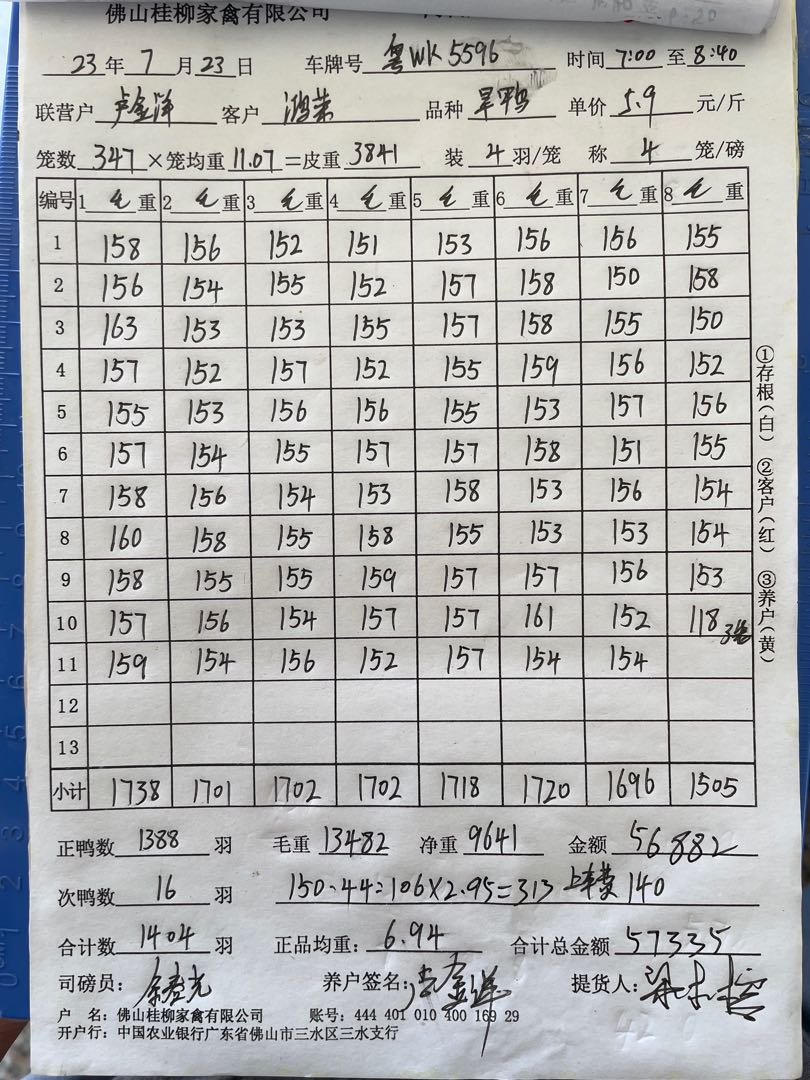 佛山桂柳家禽有限公司
23年7月23日 车牌号 粤WK5596 时间 7:00 至 8:40
联营户 卢金洋 客户 鸿荣 品种 旱鸭 单价 5.9 元/斤
笼数 347 ×笼均重 11.07 =皮重 3841 装 4 羽/笼 称 4 笼/磅
编号 1 毛重 2 毛重 3 毛重 4 毛重 5 毛重 6 毛重 7 毛重 8 毛重
1 158 156 152 151 153 156 156 155
2 156 154 155 152 157 158 150 158
3 163 153 153 155 157 158 155 150
4 157 152 157 152 155 159 156 152
5 155 153 156 156 155 153 157 156
6 157 154 155 157 157 158 151 155
7 158 156 154 153 158 153 156 154
8 160 158 155 158 155 153 153 154
9 158 155 155 159 157 157 156 153
10 157 156 154 157 157 161 152 118 3笼
11 159 154 156 152 157 154 154
12
13
小计 1738 1701 1702 1702 1718 1720 1696 1505
①存根(白) ②客户(红) ③养户(黄)
正鸭数 1388 羽 毛重 13482 净重 9641 金额 56882
次鸭数 16 羽 150-44=106×2.95=313 上车费 140
合计数 1404 羽 正品均重: 6.94 合计总金额 57335
司磅员: 养户签名: 提货人:
户 名: 佛山桂柳家禽有限公司 账号: 444 401 010 400 169 29
开户行: 中国农业银行广东省佛山市三水区三水支行